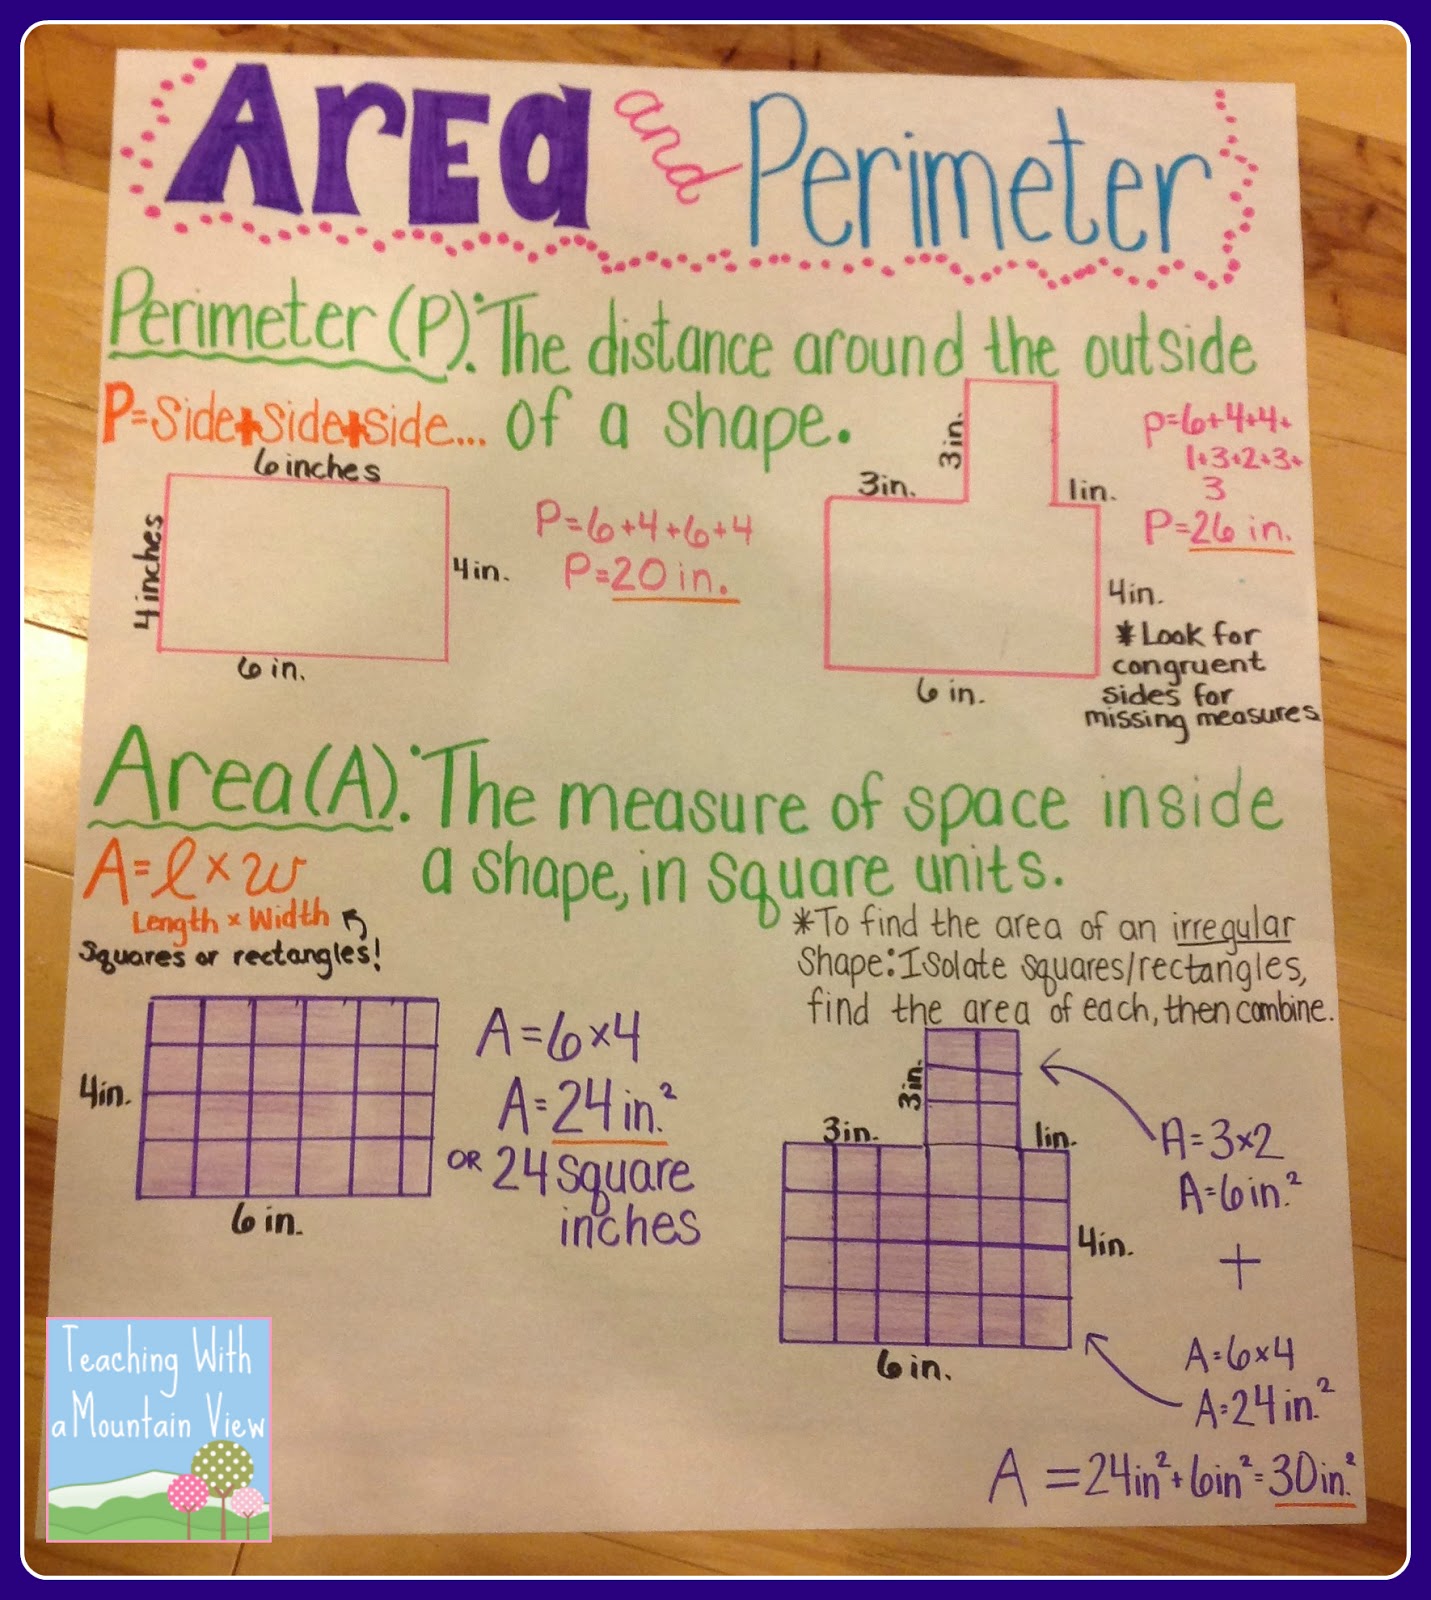 Area and Perimeter
Perimeter (P): The distance around the outside
P=side+side+side... of a shape.
6 inches
4 inches
4in.
6 in.
P=6+4+6+4
P=20 in.
3in.
3in.
1in.
4in.
6 in.
P=6+4+4+
1+3+2+3+
3
P=26 in.
*Look for
congruent
sides for
missing measures
Area (A): The measure of space inside
a shape, in square units.
A=l×w
Length × Width
Squares or rectangles!
4in.
6 in.
A=6×4
A=24in.²
OR 24 square
inches
*To find the area of an irregular
Shape: Isolate squares/rectangles,
find the area of each, then combine.
3in.
3in.
1in.
4in.
6 in.
A=3×2
A=6in.²
+
A=6×4
A=24in.²
A=24in²+6in²=30in.²
Teaching With
a Mountain View